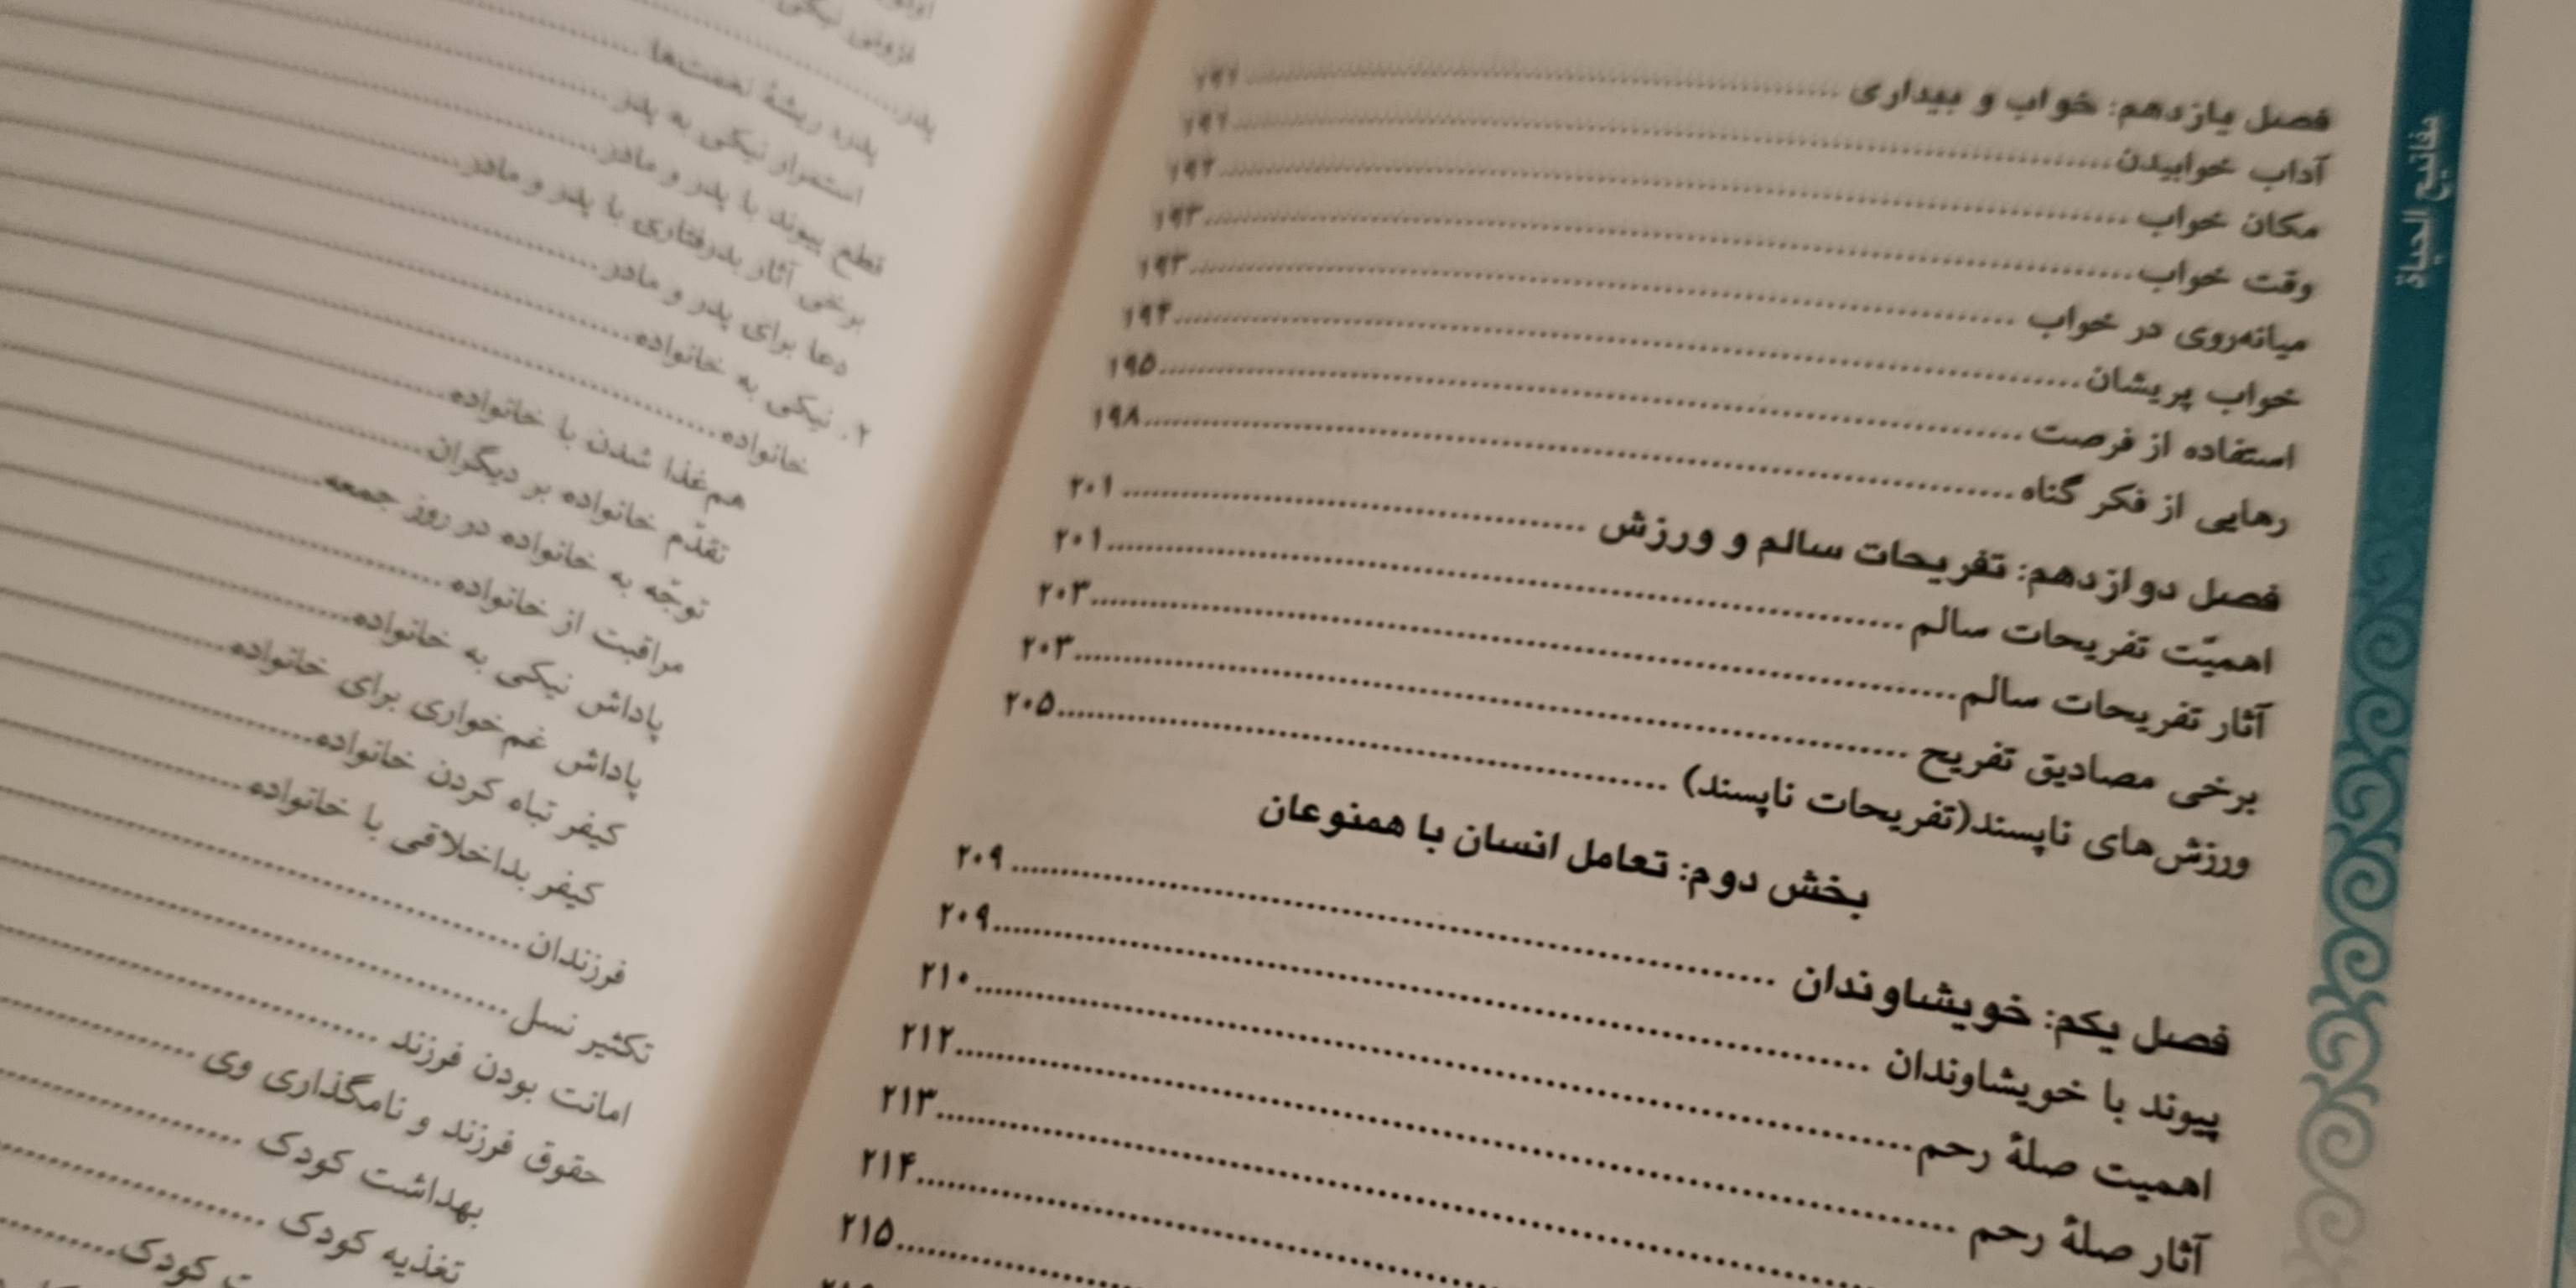 مفاتیح الحیاة
فصل یازدهم: خواب و بیداری ........ ۱۹۲
آداب خوابیدن ........ ۱۹۲
مکان خواب ........ ۱۹۲
وقت خواب ........ ۱۹۳
میانه‌روی در خواب ........ ۱۹۳
خواب پریشان ........ ۱۹۴
استفاده از فرصت ........ ۱۹۵
رهایی از فکر گناه ........ ۱۹۸
فصل دوازدهم: تفریحات سالم و ورزش ........ ۲۰۱
اهمیّت تفریحات سالم ........ ۲۰۱
آثار تفریحات سالم ........ ۲۰۳
برخی مصادیق تفریح ........ ۲۰۳
ورزش‌های ناپسند(تفریحات ناپسند) ........ ۲۰۵
بخش دوم: تعامل انسان با همنوعان
فصل یکم: خویشاوندان ........ ۲۰۹
پیوند با خویشاوندان ........ ۲۰۹
اهمیت صلهٔ رحم ........ ۲۱۰
آثار صلهٔ رحم ........ ۲۱۲
۲۱۳
۲۱۴
۲۱۵
فزونی نیکی
پدر
پدر، ریشهٔ نعمت‌ها
استمرار نیکی به پدر
قطع پیوند با پدر و مادر
برخی آثار بدرفتاری با پدر و مادر
دعا برای پدر و مادر
۲. نیکی به خانواده
خانواده
هم‌غذا شدن با خانواده
تقدّم خانواده بر دیگران
توجّه به خانواده در روز جمعه
مراقبت از خانواده
پاداش نیکی به خانواده
پاداش غم‌خواری برای خانواده
کیفر تباه کردن خانواده
کیفر بداخلاقی با خانواده
فرزندان
تکثیر نسل
امانت بودن فرزند
حقوق فرزند و نامگذاری وی
بهداشت کودک
تغذیه کودک
کودک